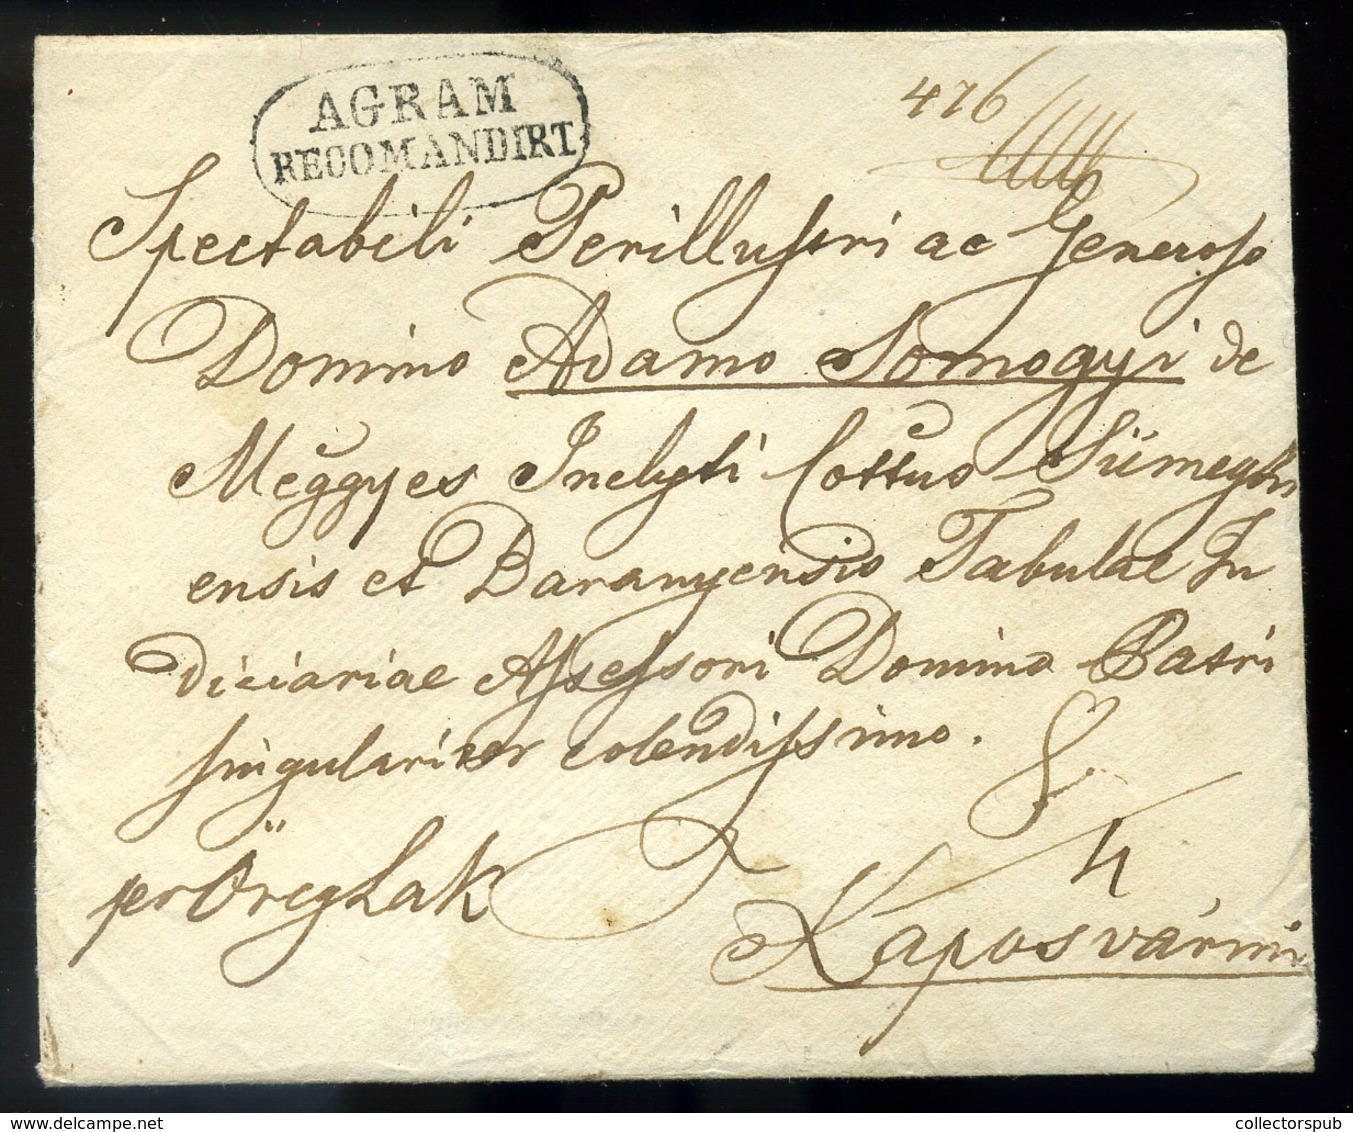 AGRAM
RECOMANDIRT
476
Spectabili Perillustri ac Generoso
Domino Adamo Somogyi de
Meggyes Inclyti Cottus Sümegh
ensis et Baranyensis Tabulae Ju
diciariae Assessori Domino Patri
singulariter colendissimo.
per Öreglak
Kaposvárini
collectorspub.com